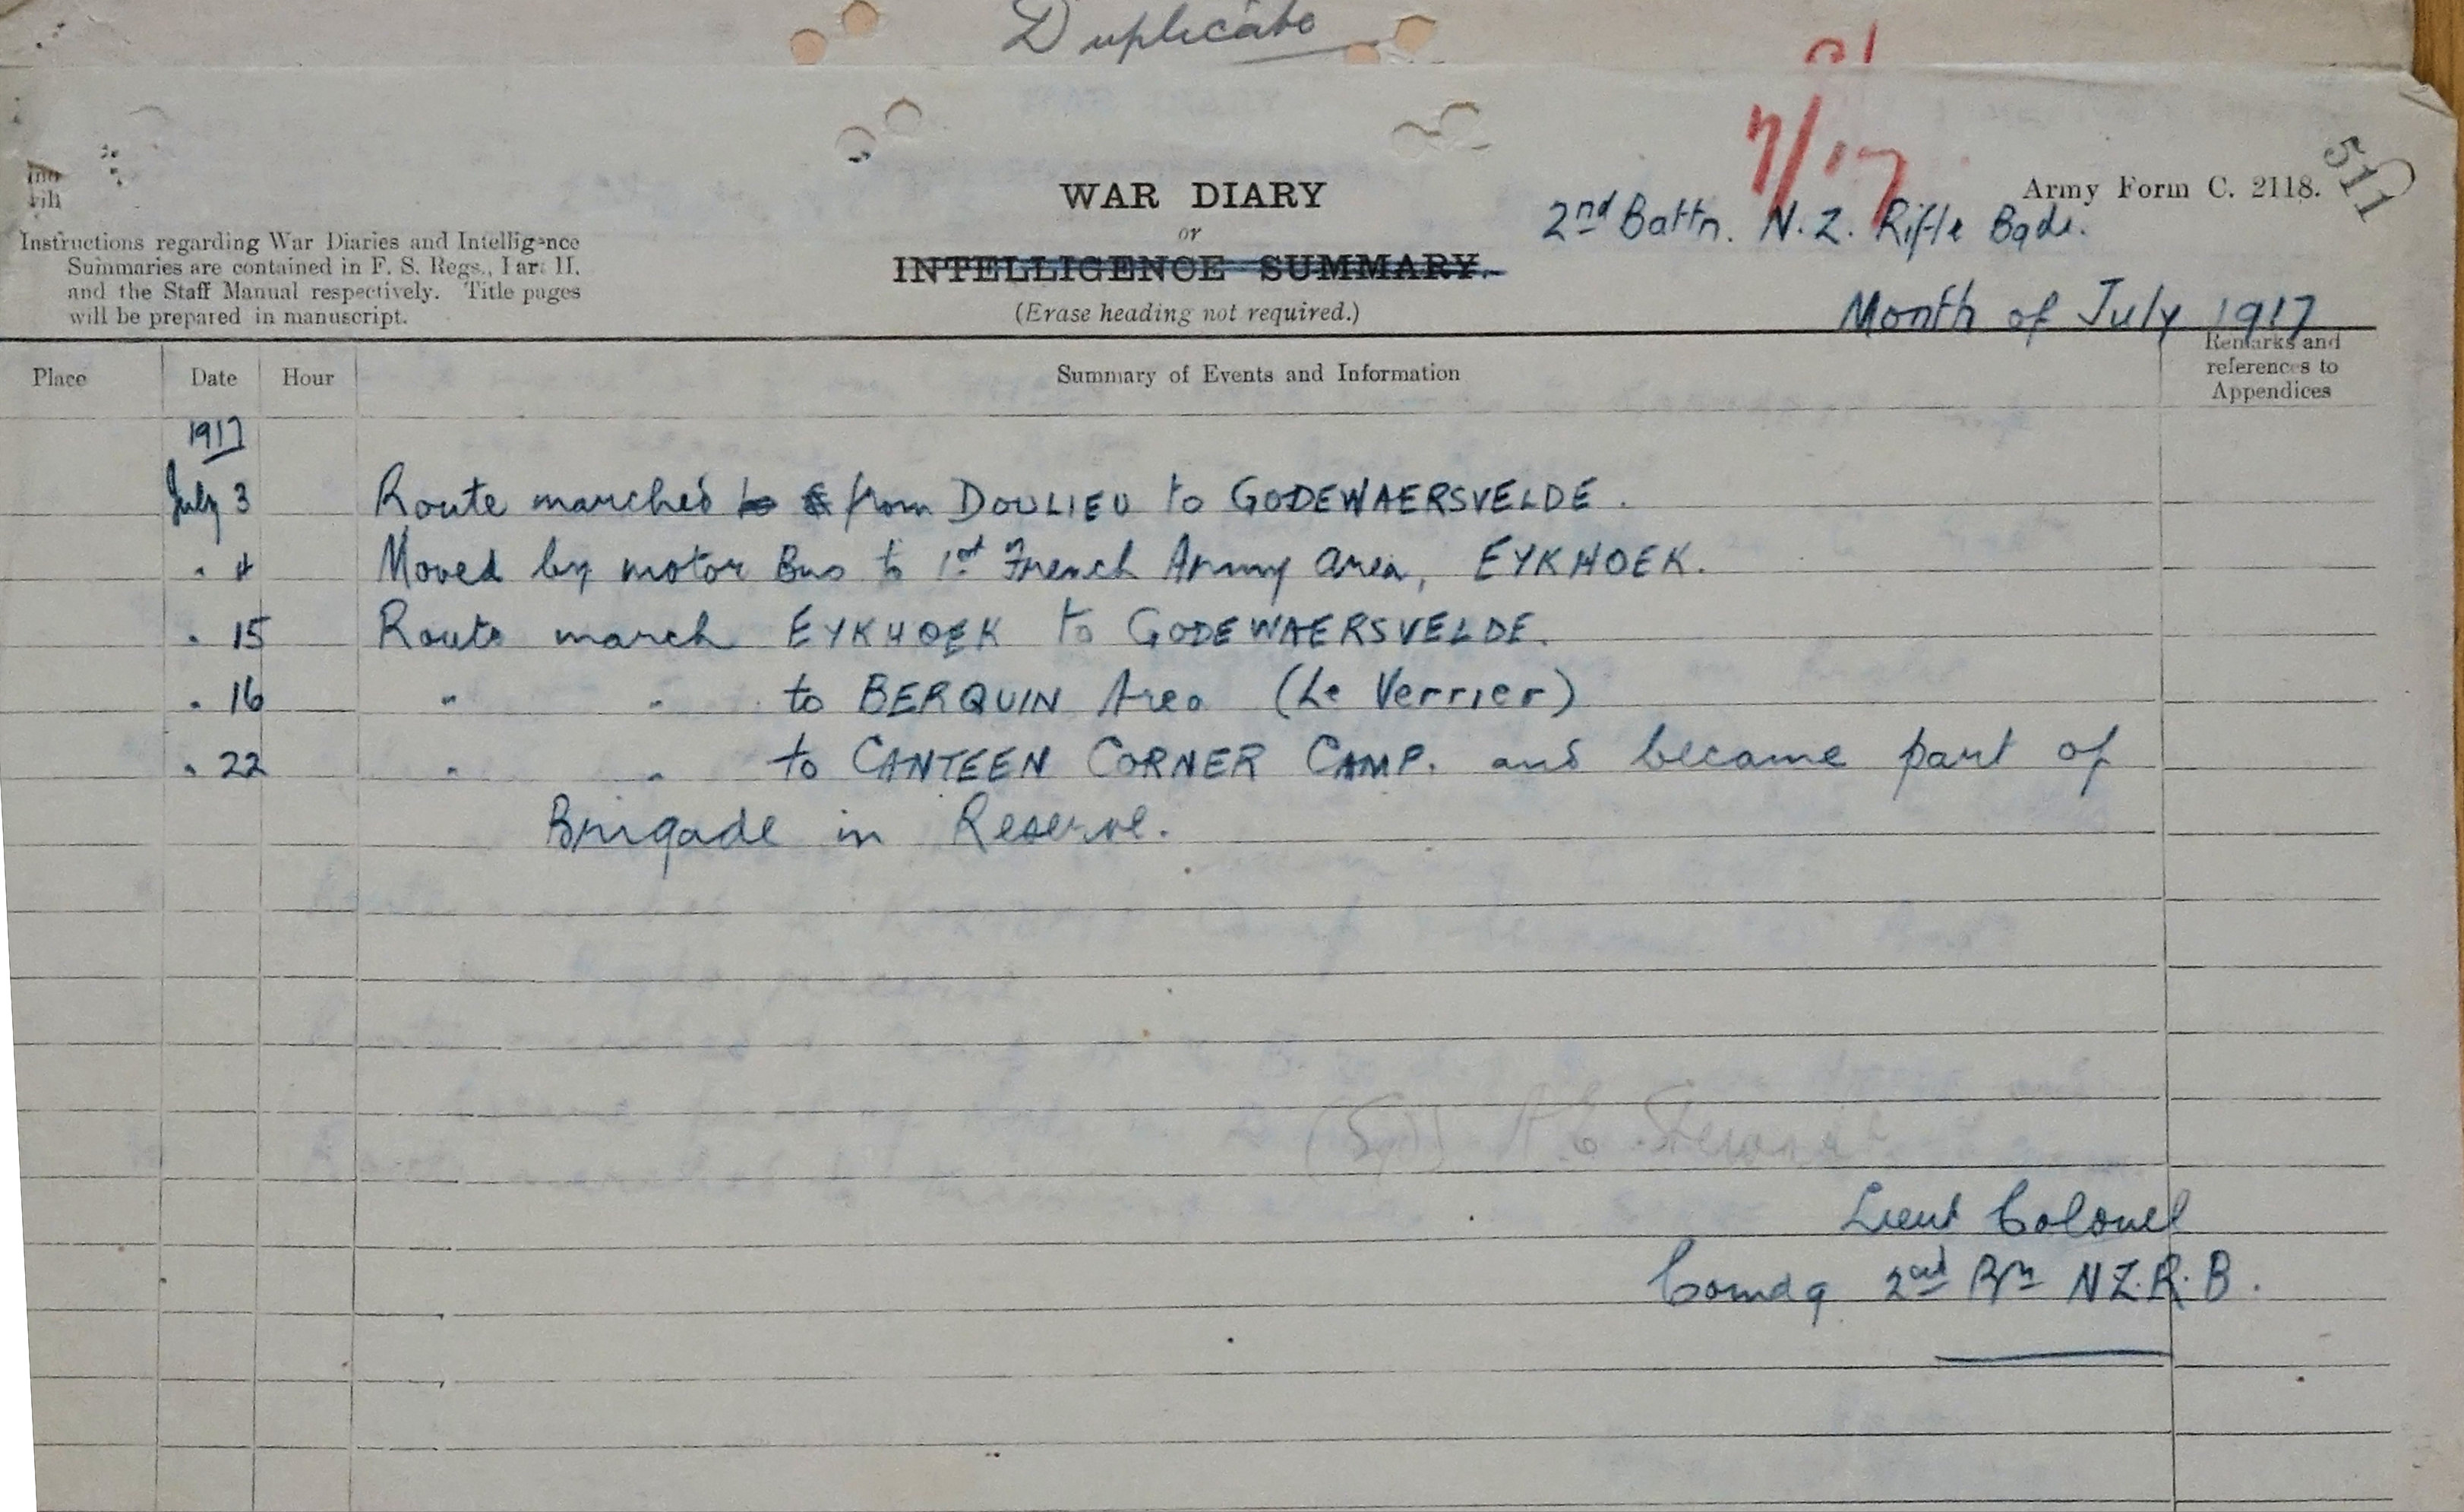 Duplicate
7/17
511
WAR DIARY
or
INTELLIGENCE SUMMARY.
(Erase heading not required.)
Instructions regarding War Diaries and Intelligence
Summaries are contained in F. S. Regs., Part II.
and the Staff Manual respectively. Title pages
will be prepared in manuscript.
Army Form C. 2118.
2nd Battn. N.Z. Rifle Bgde.
Month of July 1917
Place Date Hour Summary of Events and Information Remarks and references to Appendices
1917
July 3 Route marched from DOULIEU to GODEWAERSVELDE.
" 4 Moved by motor Bus to 1st French Army area, EYKHOEK.
" 15 Route march EYKHOEK to GODEWAERSVELDE.
" 16 " " to BERQUIN Area (Le Verrier)
" 22 " " to CANTEEN CORNER CAMP. and became part of
Brigade in Reserve.
(Sgd) A E Stewart
Lieut Colonel
Comdg 2nd Bn N.Z.R.B.